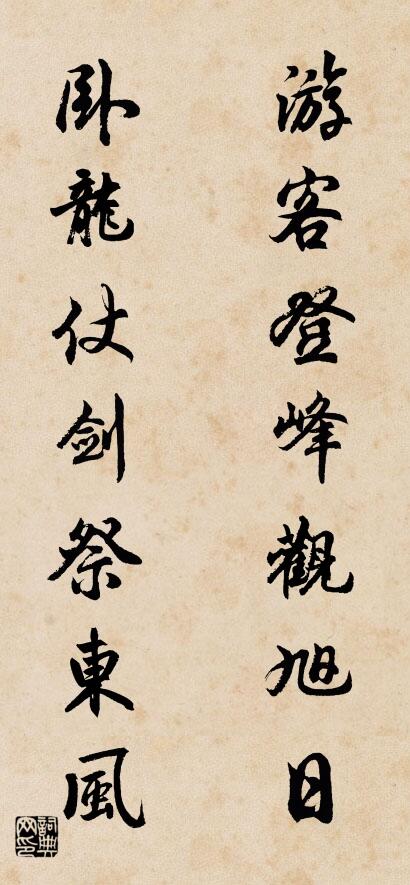 游客登峰觀旭日
卧龍仗劍祭東風
詞典網印